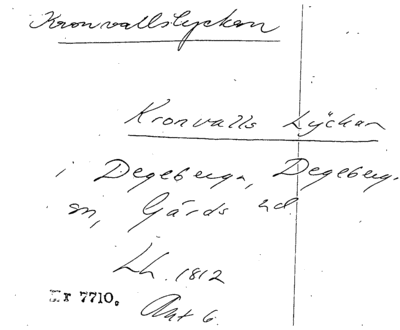 Kronvallslyckan
Kronvalls Lÿckan
i Degeberga, Degeberga
sn, Gärds hd.
Lh. 1812
Nr 7710. Akt 6.